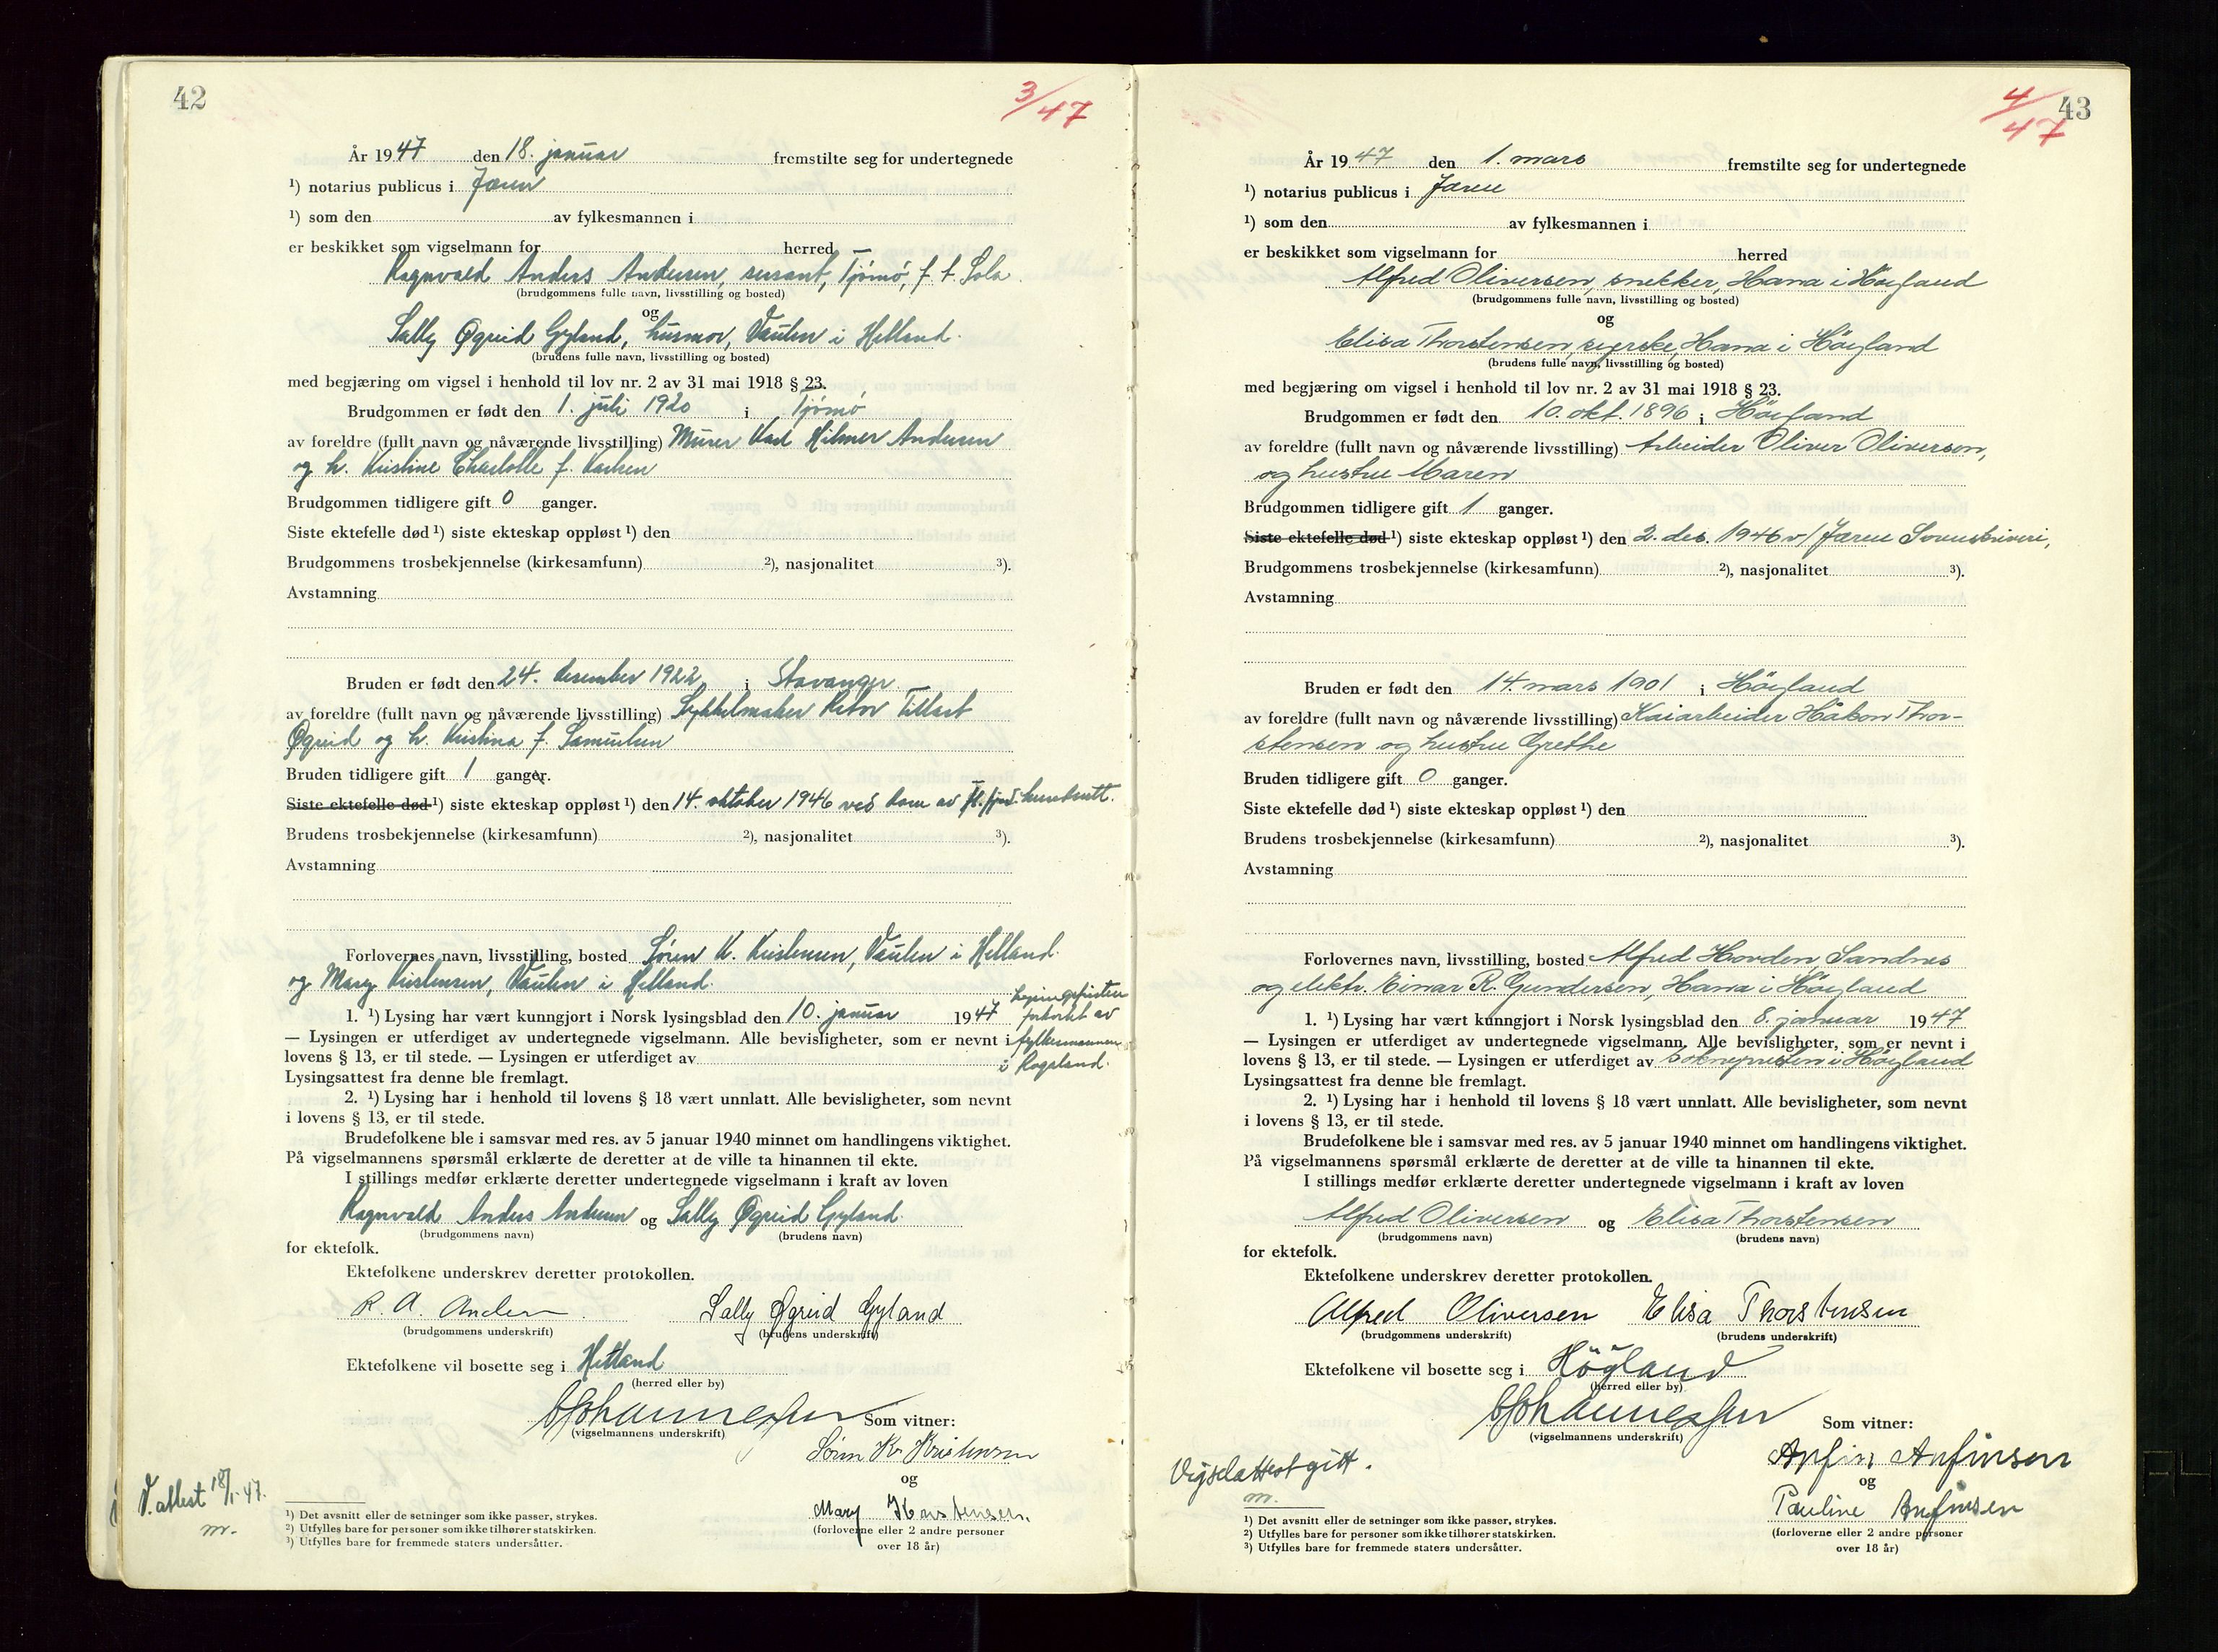 42
3/47
År 1947 den 18. januar fremstilte seg for undertegnede
¹) notarius publicus i Jæren
¹) som den av fylkesmannen i
er beskikket som vigselmann for herred
Ragnvald Anders Andersen, sersant, Tjömö, f. t. Sola.
(brudgommens fulle navn, livsstilling og bosted)
og
Sally Øgreid Gyland, husmor, Vaulen i Hetland.
(brudens fulle navn, livsstilling og bosted)
med begjæring om vigsel i henhold til lov nr. 2 av 31 mai 1918 § 23.
Brudgommen er født den 1. juli 1920 i Tjömö
av foreldre (fullt navn og nåværende livsstilling) Murer Karl Hilmer Andersen
og h. Kristine Charlotte f. Karlsen
Brudgommen tidligere gift 0 ganger.
Siste ektefelle død ¹) siste ekteskap oppløst ¹) den
Brudgommens trosbekjennelse (kirkesamfunn) ²), nasjonalitet ³).
Avstamning
Bruden er født den 24. desember 1922 i Stavanger
av foreldre (fullt navn og nåværende livsstilling) Sykkelmaker Peder Tillart
Øgreid og h. Kristina f. Samuelsen
Bruden tidligere gift 1 ganger.
Siste ektefelle død ¹) siste ekteskap oppløst ¹) den 14. oktober 1946 ved dom av herredsrett.
Brudens trosbekjennelse (kirkesamfunn) ²), nasjonalitet ³).
Avstamning
Forlovernes navn, livsstilling, bosted Sören K. Kristensen, Vaulen i Hetland
og Mary Kristensen, Vaulen i Hetland.
1. ¹) Lysing har vært kunngjort i Norsk lysingsblad den 10. januar 1947
Lysingsfristen
forkortet av
fylkesmannen
i Rogaland.
— Lysingen er utferdiget av undertegnede vigselmann. Alle bevisligheter, som er nevnt i
lovens § 13, er til stede. — Lysingen er utferdiget av
Lysingsattest fra denne ble fremlagt.
2. ¹) Lysing har i henhold til lovens § 18 vært unnlatt. Alle bevisligheter, som nevnt
i lovens § 13, er til stede.
Brudefolkene ble i samsvar med res. av 5 januar 1940 minnet om handlingens viktighet.
På vigselmannens spørsmål erklærte de deretter at de ville ta hinannen til ekte.
I stillings medfør erklærte deretter undertegnede vigselmann i kraft av loven
Ragnvald Anders Andersen og Sally Øgreid Gyland.
(brudgommens navn) (brudens navn)
for ektefolk.
Ektefolkene underskrev deretter protokollen.
R. A. Andersen Sally Øgreid Gyland
(brudgommens underskrift) (brudens underskrift)
Ektefolkene vil bosette seg i Hetland
(herred eller by)
Johannessen
(vigselmannens underskrift)
Som vitner:
Sören Kr. Kristensen
og
Mary Kristensen.
(forloverne eller 2 andre personer
over 18 år)
V. attest 18/1-47.
m.
¹) Det avsnitt eller de setninger som ikke passer, strykes.
²) Utfylles bare for personer som ikke tilhører statskirken.
³) Utfylles bare for fremmede staters undersåtter.
43
4/47
År 1947 den 1. mars fremstilte seg for undertegnede
¹) notarius publicus i Jæren
¹) som den av fylkesmannen i
er beskikket som vigselmann for herred
Alfred Oliversen, snekker, Hana i Höyland
(brudgommens fulle navn, livsstilling og bosted)
og
Elisa Thorstensen, syerske, Hana i Höyland
(brudens fulle navn, livsstilling og bosted)
med begjæring om vigsel i henhold til lov nr. 2 av 31 mai 1918 § 23.
Brudgommen er født den 10. okt. 1896 i Höyland
av foreldre (fullt navn og nåværende livsstilling) Arbeider Oliver Oliversen,
og hustru Maren
Brudgommen tidligere gift 1 ganger.
Siste ektefelle død ¹) siste ekteskap oppløst ¹) den 2. des. 1946 v/ Jæren Sorenskriveri,
Brudgommens trosbekjennelse (kirkesamfunn) ²), nasjonalitet ³).
Avstamning
Bruden er født den 14. mars 1901 i Höyland
av foreldre (fullt navn og nåværende livsstilling) Kaiarbeider Håkon Thor-
stensen og hustru Grethe
Bruden tidligere gift 0 ganger.
Siste ektefelle død ¹) siste ekteskap oppløst ¹) den
Brudens trosbekjennelse (kirkesamfunn) ²), nasjonalitet ³).
Avstamning
Forlovernes navn, livsstilling, bosted Alfred Hovden, Sandnes
og elektr. Einar R. Gundersen, Hana i Höyland
1. ¹) Lysing har vært kunngjort i Norsk lysingsblad den 8. januar 1947
— Lysingen er utferdiget av undertegnede vigselmann. Alle bevisligheter, som er nevnt i
lovens § 13, er til stede. — Lysingen er utferdiget av Soknepresten i Höyland
Lysingsattest fra denne ble fremlagt.
2. ¹) Lysing har i henhold til lovens § 18 vært unnlatt. Alle bevisligheter, som nevnt
i lovens § 13, er til stede.
Brudefolkene ble i samsvar med res. av 5 januar 1940 minnet om handlingens viktighet.
På vigselmannens spørsmål erklærte de deretter at de ville ta hinannen til ekte.
I stillings medfør erklærte deretter undertegnede vigselmann i kraft av loven
Alfred Oliversen og Elisa Thorstensen
(brudgommens navn) (brudens navn)
for ektefolk.
Ektefolkene underskrev deretter protokollen.
Alfred Oliversen Elisa Thorstensen
(brudgommens underskrift) (brudens underskrift)
Ektefolkene vil bosette seg i Högland
(herred eller by)
Johannessen
(vigselmannens underskrift)
Som vitner:
Anfin Anfinsen
og
Pauline Anfinsen
(forloverne eller 2 andre personer
over 18 år)
Vigselattest gitt.
m.
¹) Det avsnitt eller de setninger som ikke passer, strykes.
²) Utfylles bare for personer som ikke tilhører statskirken.
³) Utfylles bare for fremmede staters undersåtter.